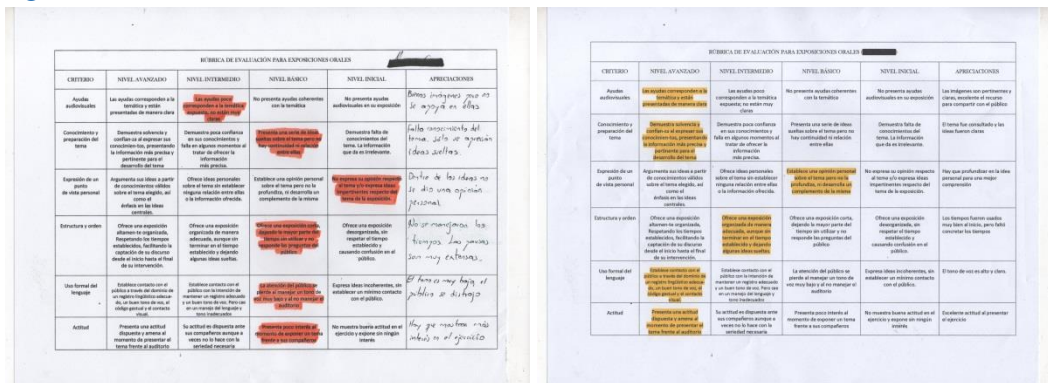 RÚBRICA DE EVALUACIÓN PARA EXPOSICIONES ORALES
CRITERIO NIVEL AVANZADO NIVEL INTERMEDIO NIVEL BÁSICO NIVEL INICIAL APRECIACIONES
Ayudas audiovisuales
Las ayudas corresponden a la temática y están presentadas de manera clara
Las ayudas poco corresponden a la temática expuesta; no están muy claras
No presenta ayudas coherentes con la temática
No presenta ayudas audiovisuales en su exposición
Buenas imágenes pero no se apoya en ellas
Conocimiento y preparación del tema
Demuestra solvencia y confian-za al expresar sus conocimien-tos, presentando la información más precisa y pertinente para el desarrollo del tema
Demuestra poca confianza en sus conocimientos y falla en algunos momentos el tratar de ofrecer la información más precisa.
Presenta una serie de ideas sueltas sobre el tema pero no hay continuidad ni relación entre ellas
Demuestra falta de conocimientos del tema. La información que da es irrelevante.
Falta conocimiento del tema, solo se expresan ideas sueltas.
Expresión de un punto de vista personal
Argumenta sus ideas a partir de conocimientos válidos sobre el tema elegido, así como el énfasis en las ideas centrales.
Ofrece ideas personales sobre el tema sin establecer ninguna relación entre ellas o la información ofrecida.
Establece una opinión personal sobre el tema pero no la profundiza, ni desarrolla un complemento de la misma
No expresa su opinión respecto al tema y/o expresa ideas impertinentes respecto del tema de la exposición.
Dentro de las ideas no se dio una opinión personal.
Estructura y orden
Ofrece una exposición altamen-te organizada, Respetando los tiempos establecidos, facilitando la captación de su discurso desde el inicio hasta el final de su intervención.
Ofrece una exposición organizada de manera adecuada, aunque sin terminar en el tiempo establecido y dejando algunas ideas sueltas.
Ofrece una exposición corta, dejando la mayor parte del tiempo sin utilizar y no responde las preguntas del público
Ofrece una exposición desorganizada, sin respetar el tiempo establecido y causando confusión en el público.
No se manejaron los tiempos. Las pausas son muy extensas.
Uso formal del lenguaje
Establece contacto con el público a través del dominio de un registro lingüístico adecua-do, un buen tono de voz, el código gestual y el contacto visual.
Establece contacto con el público con la intención de mantener un registro adecuado y un buen tono de voz. Pero cae en un manejo del lenguaje y tono inadecuados
La atención del público se pierde al manejar un tono de voz muy bajo y al no manejar el auditorio
Expresa ideas incoherentes, sin establecer un mínimo contacto con el público.
El tono es muy bajo, el público se distrajo
Actitud
Presenta una actitud dispuesta y amena al momento de presentar el tema frente al auditorio
Su actitud es dispuesta ante sus compañeros aunque a veces no lo hace con la seriedad necesaria
Presenta poco interés al momento de exponer un tema frente a sus compañeros
No muestra buena actitud en el ejercicio y expone sin ningún interés
Hay que mostrar más interés en el ejercicio
RÚBRICA DE EVALUACIÓN PARA EXPOSICIONES ORALES
CRITERIO NIVEL AVANZADO NIVEL INTERMEDIO NIVEL BÁSICO NIVEL INICIAL APRECIACIONES
Ayudas audiovisuales
Las ayudas corresponden a la temática y están presentadas de manera clara
Las ayudas poco corresponden a la temática expuesta; no están muy claras
No presenta ayudas coherentes con la temática
No presenta ayudas audiovisuales en su exposición
Las imágenes son pertinentes y claras, excelente el recurso para compartir con el público
Conocimiento y preparación del tema
Demuestra solvencia y confian-za al expresar sus conocimien-tos, presentando la información más precisa y pertinente para el desarrollo del tema
Demuestra poca confianza en sus conocimientos y falla en algunos momentos el tratar de ofrecer la información más precisa.
Presenta una serie de ideas sueltas sobre el tema pero no hay continuidad ni relación entre ellas
Demuestra falta de conocimientos del tema. La información que da es irrelevante.
El tema fue consultado y las ideas fueron claras
Expresión de un punto de vista personal
Argumenta sus ideas a partir de conocimientos válidos sobre el tema elegido, así como el énfasis en las ideas centrales.
Ofrece ideas personales sobre el tema sin establecer ninguna relación entre ellas o la información ofrecida.
Establece una opinión personal sobre el tema pero no la profundiza, ni desarrolla un complemento de la misma
No expresa su opinión respecto al tema y/o expresa ideas impertinentes respecto del tema de la exposición.
Hay que profundizar en la idea personal para una mejor comprensión
Estructura y orden
Ofrece una exposición altamen-te organizada, Respetando los tiempos establecidos, facilitando la captación de su discurso desde el inicio hasta el final de su intervención.
Ofrece una exposición organizada de manera adecuada, aunque sin terminar en el tiempo establecido y dejando algunas ideas sueltas.
Ofrece una exposición corta, dejando la mayor parte del tiempo sin utilizar y no responde las preguntas del público
Ofrece una exposición desorganizada, sin respetar el tiempo establecido y causando confusión en el público.
Los tiempos fueron usados muy bien al inicio, pero faltó concretar los tiempos
Uso formal del lenguaje
Establece contacto con el público a través del dominio de un registro lingüístico adecua-do, un buen tono de voz, el código gestual y el contacto visual.
Establece contacto con el público con la intención de mantener un registro adecuado y un buen tono de voz. Pero cae en un manejo del lenguaje y tono inadecuados
La atención del público se pierde al manejar un tono de voz muy bajo y al no manejar el auditorio
Expresa ideas incoherentes, sin establecer un mínimo contacto con el público.
El tono de voz es alto y claro.
Actitud
Presenta una actitud dispuesta y amena al momento de presentar el tema frente al auditorio
Su actitud es dispuesta ante sus compañeros aunque a veces no lo hace con la seriedad necesaria
Presenta poco interés al momento de exponer un tema frente a sus compañeros
No muestra buena actitud en el ejercicio y expone sin ningún interés
Excelente actitud al presentar el ejercicio